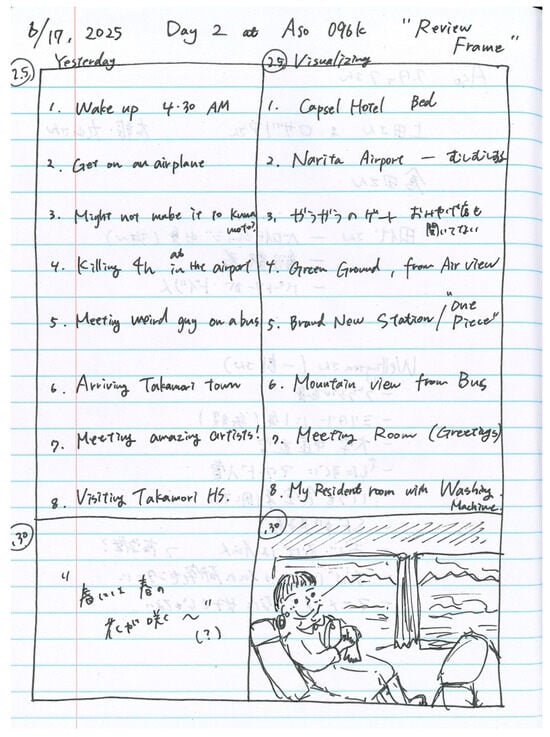 6/17, 2025 Day 2 at Aso 096k "Review Frame"
2.5 Yesterday
1. Wake up 4:30 AM
2. Get on an airplane
3. Might not make it to Kumamoto?
4. Killing 4h at in the airport
5. Meeting weird guy on a bus
6. Arriving Takamori town
7. Meeting amazing artists!
8. Visiting Takamori HS.
2.5 Visualizing
1. Capsel Hotel Bed
2. Narita Airport — むしむしする
3. ガラガラのゲート おみやげ店も
開いてない
4. Green Ground, from Air view
5. Brand New Station / "One
Piece"
6. Mountain view from Bus
7. Meeting Room (Greetings)
8. My Resident room with Washing
Machine
.30
"春には 春の
花が咲く〜"
(?)
.30